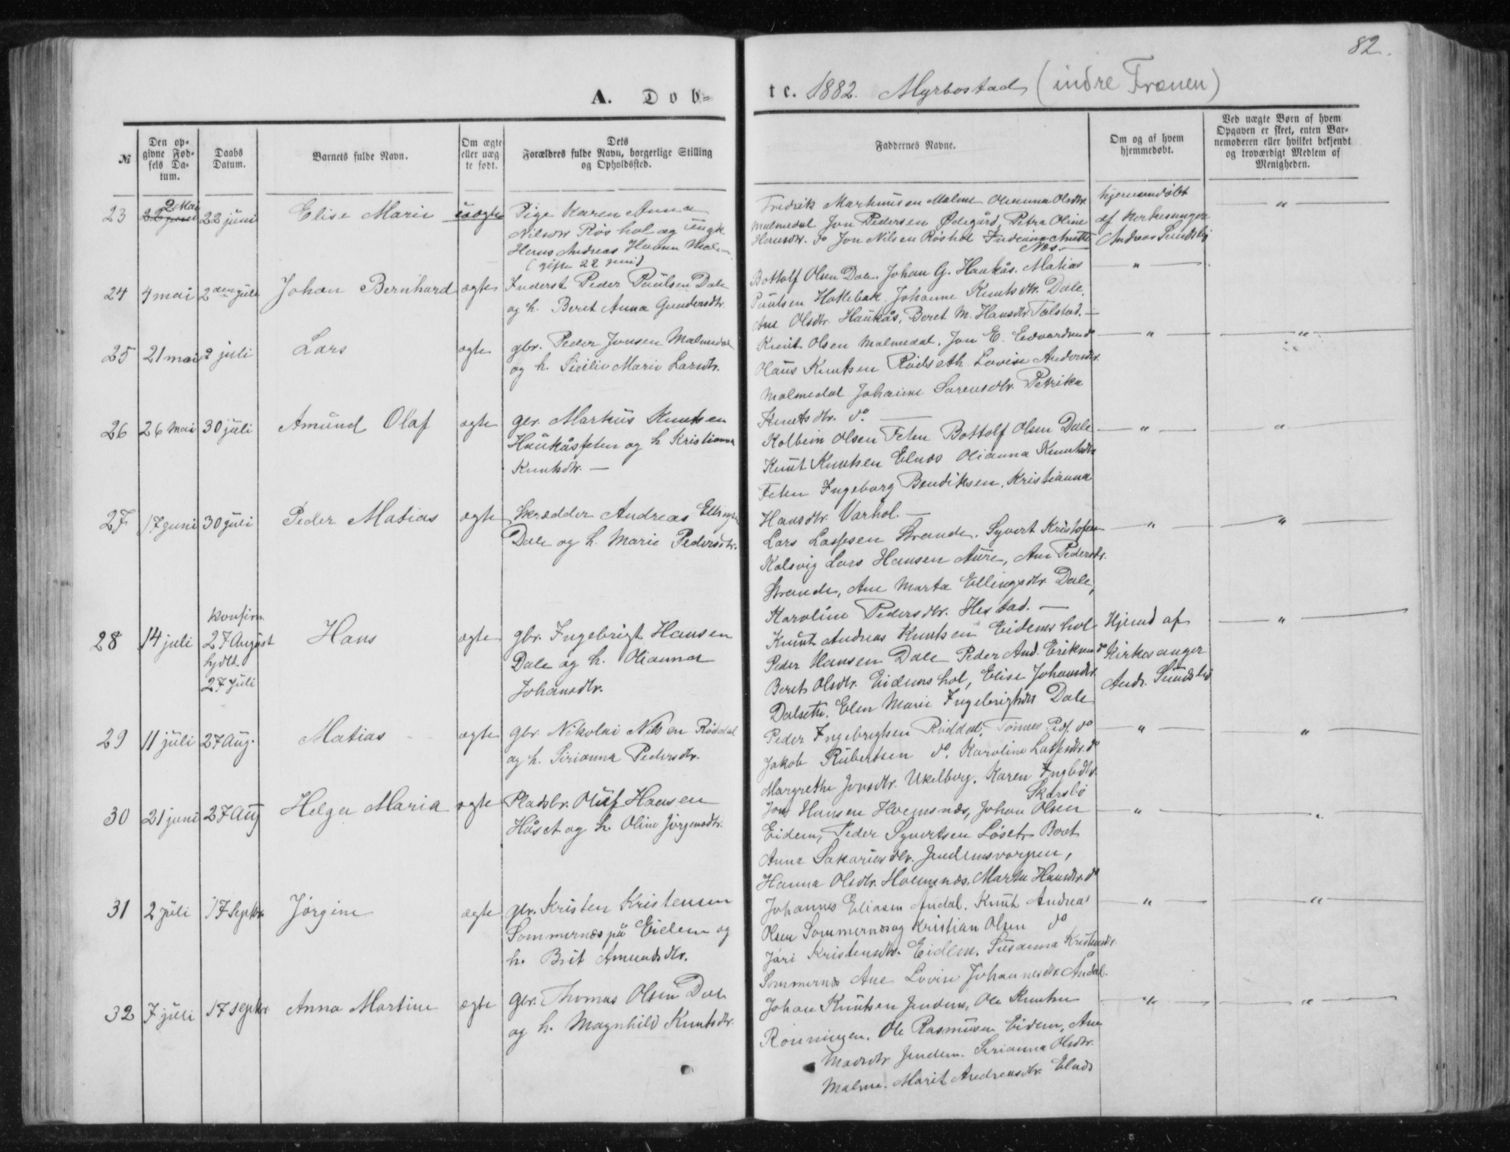 82.
A. Døb-
te. 1882. Myrbostad (indre Frænen)
№
Den op-
givne Fød-
sels Da-
tum.
Daabs
Datum.
Barnets fulde Navn.
Om ægte
eller uæg
te født.
Dets
Forældres fulde Navn, borgerlige Stilling
og Opholdssted.
Faddernes Navne.
Om og af hvem
hjemmedøbt.
Ved uægte Børn af hvem
Opgaven er skeet, enten Bar-
nemoderen eller hvilket bekjendt
og troværdigt Medlem af
Menigheden.
23
2 Mai
22 juni
Elise Marie
uægte
Pige Karen Anna
Nilsdtr Røshol og ungk
Hans Andreas
(gifte 22 juni)
Fredrik Markussen Malme Olsdtr
Malmedal Jon Pedersen Ødegård, Petra Oline
Hansdtr. do Jon Nilsen Røshol
Næs
hjemmedøbt
af Kirkesanger
Andreas Sundsbø
24
4 mai
2den juli
Johan Bernhard
ægte
Inderst Peder Paulsen Dale
og h. Beret Anna Gundersdtr.
Bottolf Olsen Dale. Johan G. Haukås. Matias
Paulsen Hoklebak Johanne Knutsdtr. Dale,
Ane Olsdtr. Haukås, Beret M. Hansdtr. Tolstad. —
25
21 mai
2 juli
Lars
ægte
gbr. Peder Jonsen Malmedal
og h. Marie Larsdtr.
Knut Olsen Malmedal. Jon E. Edvardsen do
Olaus Knutsen Rødseth. Lovise Andersdtr.
Malmedal Johanne Sørensdtr. Petrika
Knutsdtr. do. —
26
26 mai
30 juli
Amund Olaf
ægte
gbr. Markus Knutsen
Haukåsfeten og h. Kristianna
Knutsdtr. —
Kolbein Olsen Feten Bottolf Olsen Dale
Knut Knutsen Elnæs Olianna Knutsdtr
Feten Ingeborg Bendiksen, Kristianna
Hansdtr Varhol —
27
17 juni
30 juli
Peder Matias
ægte
Skrædder Andreas Ellingsen
Dale og h. Marie Pedersdtr.
Lars Lassesen Strande. Syvert Kristofersen
Kolsvig Lars Hansen Aure, Ane Pedersdtr.
Strande, Ane Marta Ellingsdtr. Dale,
Karoline Pedersdtr. Hestad. —
28
14 juli
konfirm
27 August
hjdbt
27 juli
Hans
ægte
gbr. Ingebrigt Hansen
Dale og h. Olianna
Johansdtr.
Knut Andreas Knutsen Eidemshol
Peder Hansen Dale Peder And. Eriksen do
Beret Olsdtr. Eidemshol, Elise Johansdtr.
Dalsette. Elen Marie Ingebrigtsdtr Dale
Hjemd af
Kirkesanger
Andr. Sundsbø
29
11 juli
27 Aug.
Matias
ægte
gbr Nikolai Nilsen Røddal
og h. Sirianna Pedersdtr.
Peder Ingebrigtsen Røddal, Tønnes Ped. do
Jakob Rubertsen do. Karoline Lassesdtr. do
Margrethe Jonsdtr. Ukelberg. Karen Ingebdtr.
Skarsbø
30
21 juni
27 Aug
Helga Maria
ægte
Pladsbr. Oluf Hansen
Håset og h. Oline Jørgensdtr.
Jon Hansen Holmsnæs, Johan Olsen
Eidem, Peder Syvertsen Løset, Beret
Anne Sakariasdtr. Jendemsvarpen,
Hanna Olsdtr. Holmsnæs. Marta Hansdtr. do
31
2 juli
17 Septbr
Jørgine
ægte
gbr. Kristen Kristensen
Sommernæs på Eidem og
h. Brit Amundsdtr.
Johannes Eliasen Andal. Knut Andreas
Olsen Sommernæs og Kristian Olsen do
Jøri Kristensdtr. Eidem. Susanna Knutsdtr
Sommernæs Ane Lovise Johannesdtr. Andal.
32
7 juli
17 septbr
Anna Martine
ægte
gbr. Thomas Olsen Dale
og h. Magnhild Knutsdtr.
Johan Knutsen Jendem, Ole Knutsen
Rønningen. Ole Rasmusen Eidem, Ane
Madsdtr. Jendem. Sirianna Olsdtr.
Malme. Marit Andreasdtr. Elnæs